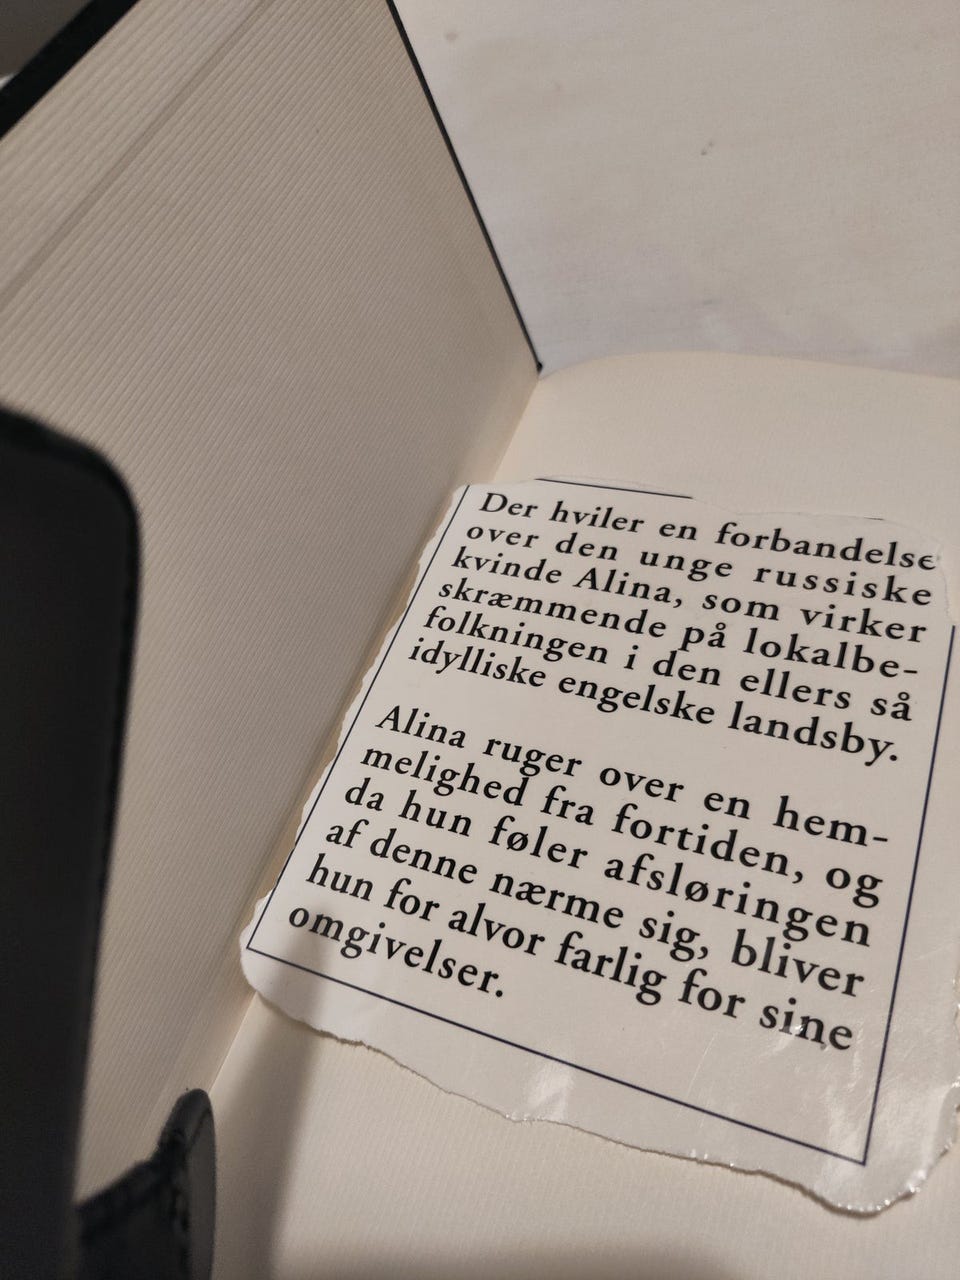 Der hviler en forbandelse
over den unge russiske
kvinde Alina, som virker
skræmmende på lokalbe-
folkningen i den ellers så
idylliske engelske landsby.
Alina ruger over en hem-
melighed fra fortiden, og
da hun føler afsløringen
af denne nærme sig, bliver
hun for alvor farlig for sine
omgivelser.